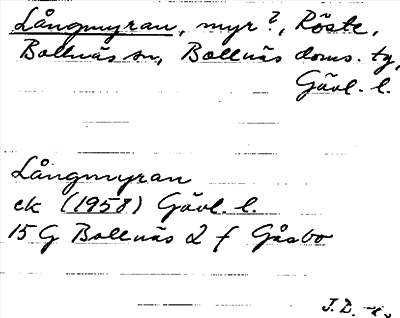 Långmyran, myr?, Röste,
Bollnäs sn, Bollnäs doms. tg,
Gävl. l.
Långmyran
ek (1958) Gävl. l.
15 G Bollnäs 2 f Gåsbo
J.D.